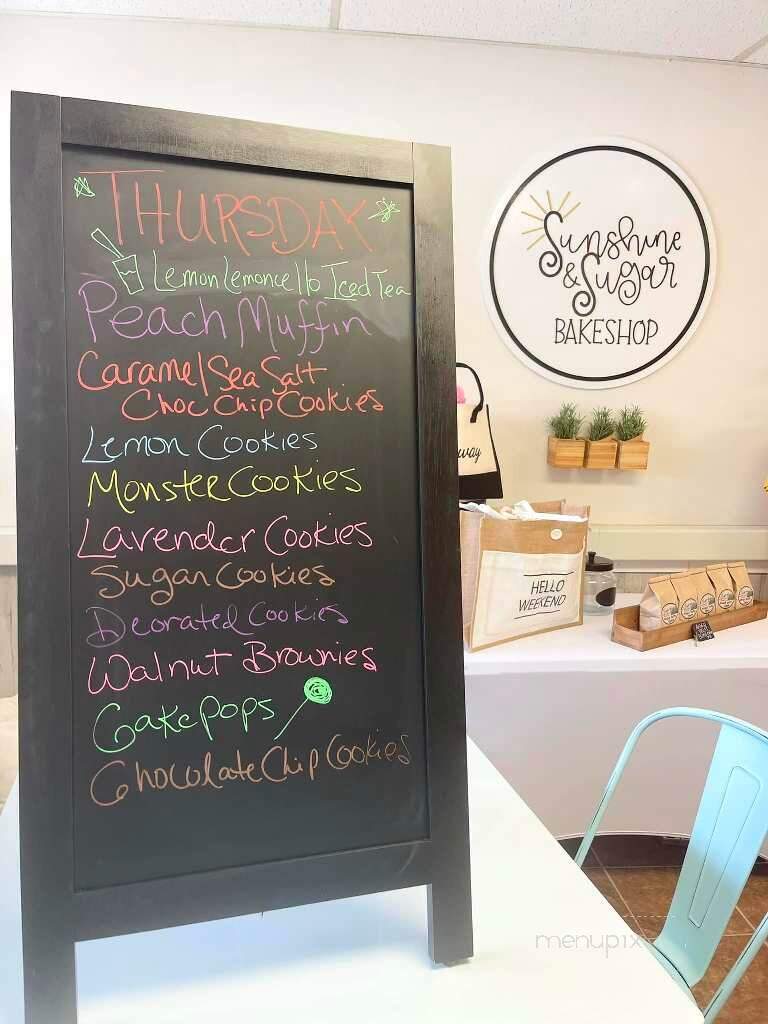 THURSDAY
Lemon Lemoncello Iced Tea
Peach Muffin
Caramel/Sea Salt
Choc Chip Cookies
Lemon Cookies
Monster Cookies
Lavender Cookies
Sugar Cookies
Deorated Cookies
Walnut Brownies
Cakepops
Chocolate Chip Cookies
Sunshine
& Sugar
BAKESHOP
way
HELLO
WEEKEND
menupix